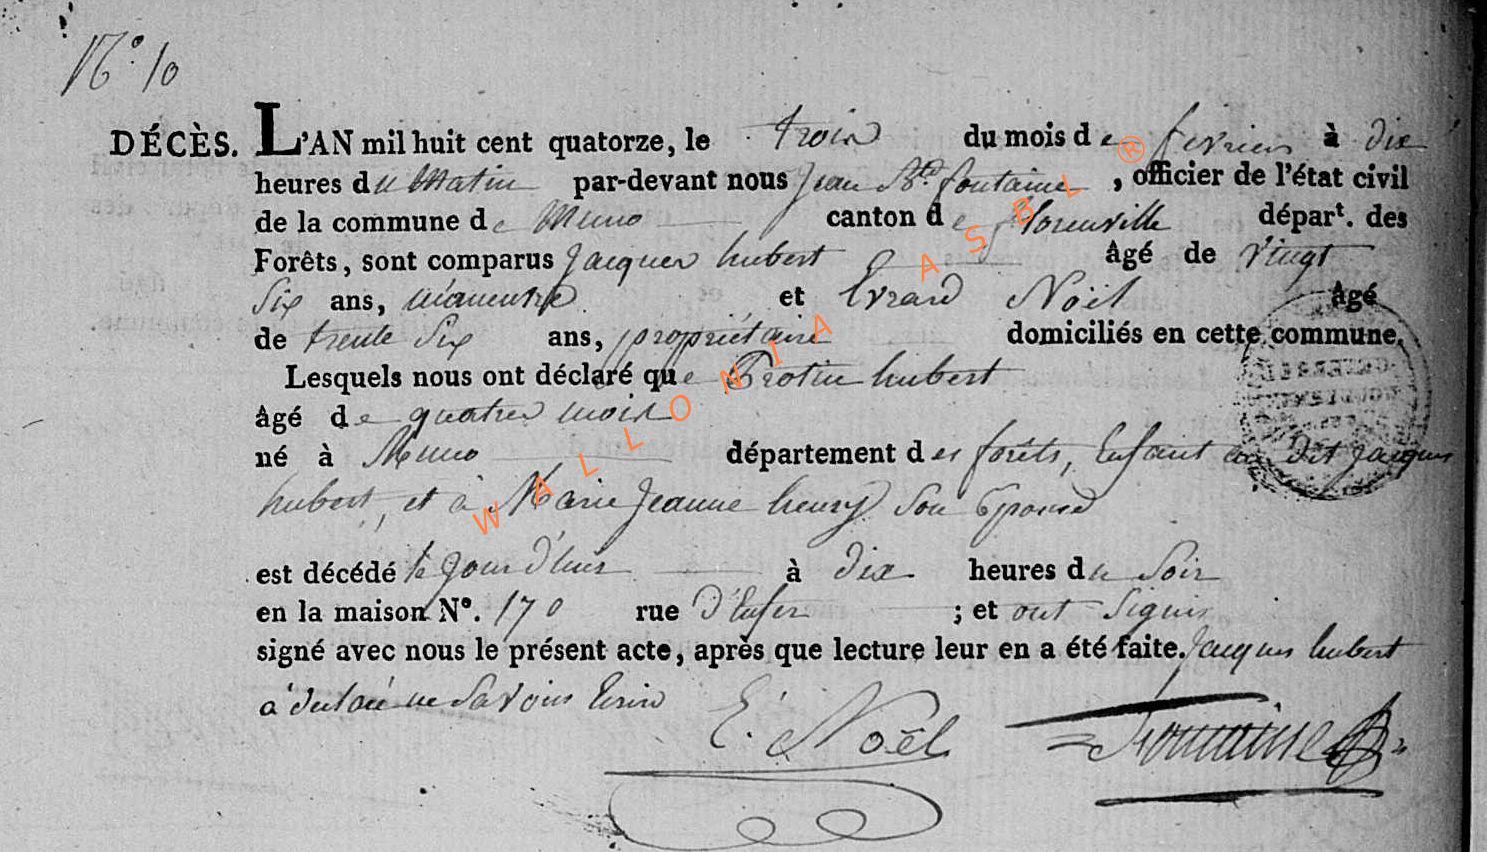 N.° 10
DÉCÈS. L'AN mil huit cent quatorze, le trois du mois de fevrier à dix
heures du Matin par-devant nous Jean Bte. fontaine, officier de l'état civil
de la commune de Muno canton de florenville départ. des
Forêts, sont comparus Jacques hubert âgé de vingt
Six ans, manœuvre et Evrard Noël âgé
de trente Six ans, propriétaire domiciliés en cette commune,
Lesquels nous ont déclaré que Protin hubert
âgé de quatres mois
né à Muno département des forêts, Enfant au dit Jacques
hubert, et à Marie Jeanne henry Son Epouse
est décédé le jour d'huis à dix heures du Soir
en la maison N°. 170 rue D'Enfer ; et ont Signés
signé avec nous le présent acte, après que lecture leur en a été faite. Jacques hubert
a déclaré ne Savoir Ecrire E. Noël Fontaine
WALLONIA ASBL ®